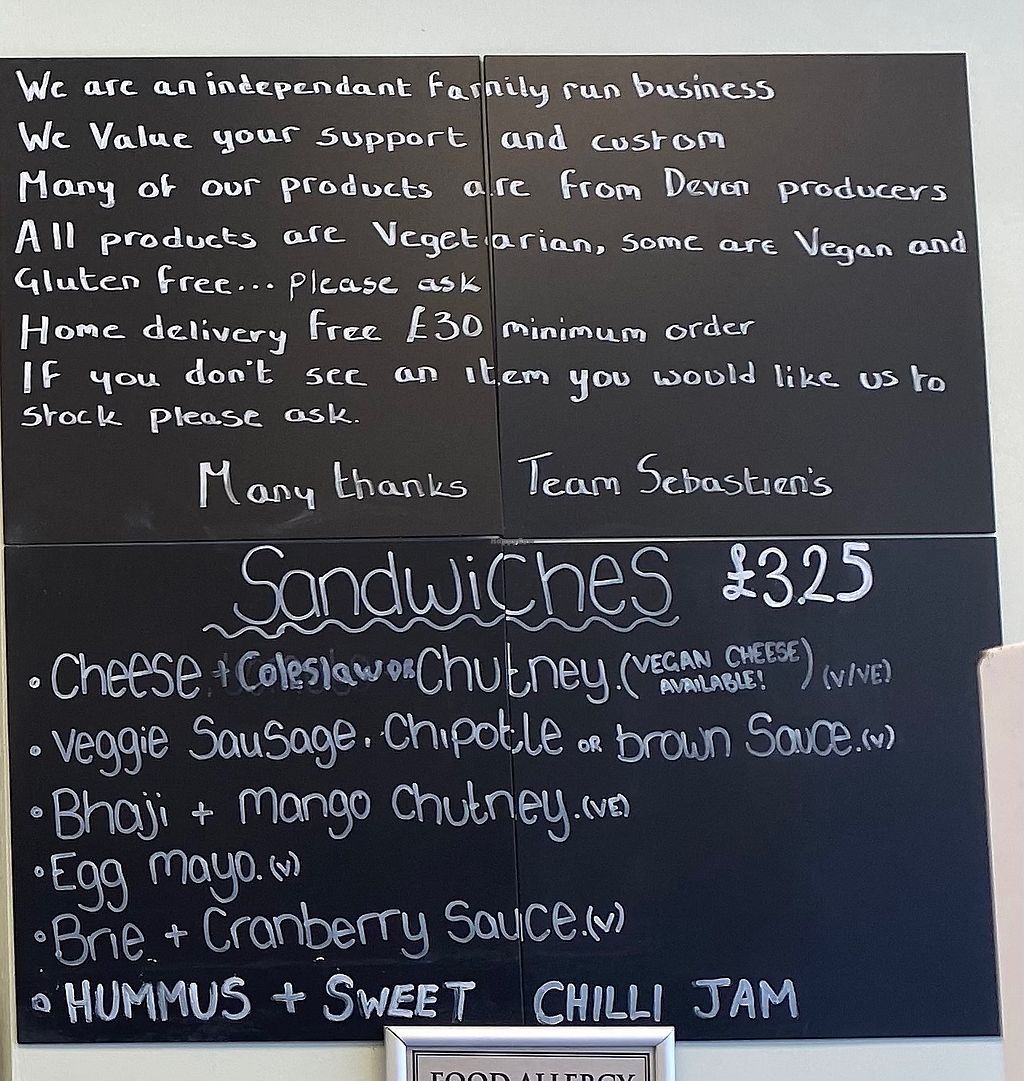 We are an independant family run business
We Value your support and custom
Many of our products are from Devon producers
All products are Vegetarian, some are Vegan and
Gluten free... please ask
Home delivery free £30 minimum order
If you don't see an item you would like us to
stock please ask.
Many thanks Team Sebastien's
Sandwiches £3.25
• Cheese + Coleslaw or Chutney. (VEGAN CHEESE AVAILABLE!) (V/VE)
• Veggie Sausage. Chipotle OR brown Sauce. (v)
• Bhaji + Mango Chutney. (VE)
• Egg Mayo. (v)
• Brie + Cranberry Sauce. (v)
• HUMMUS + SWEET CHILLI JAM
FOOD ALLERGY